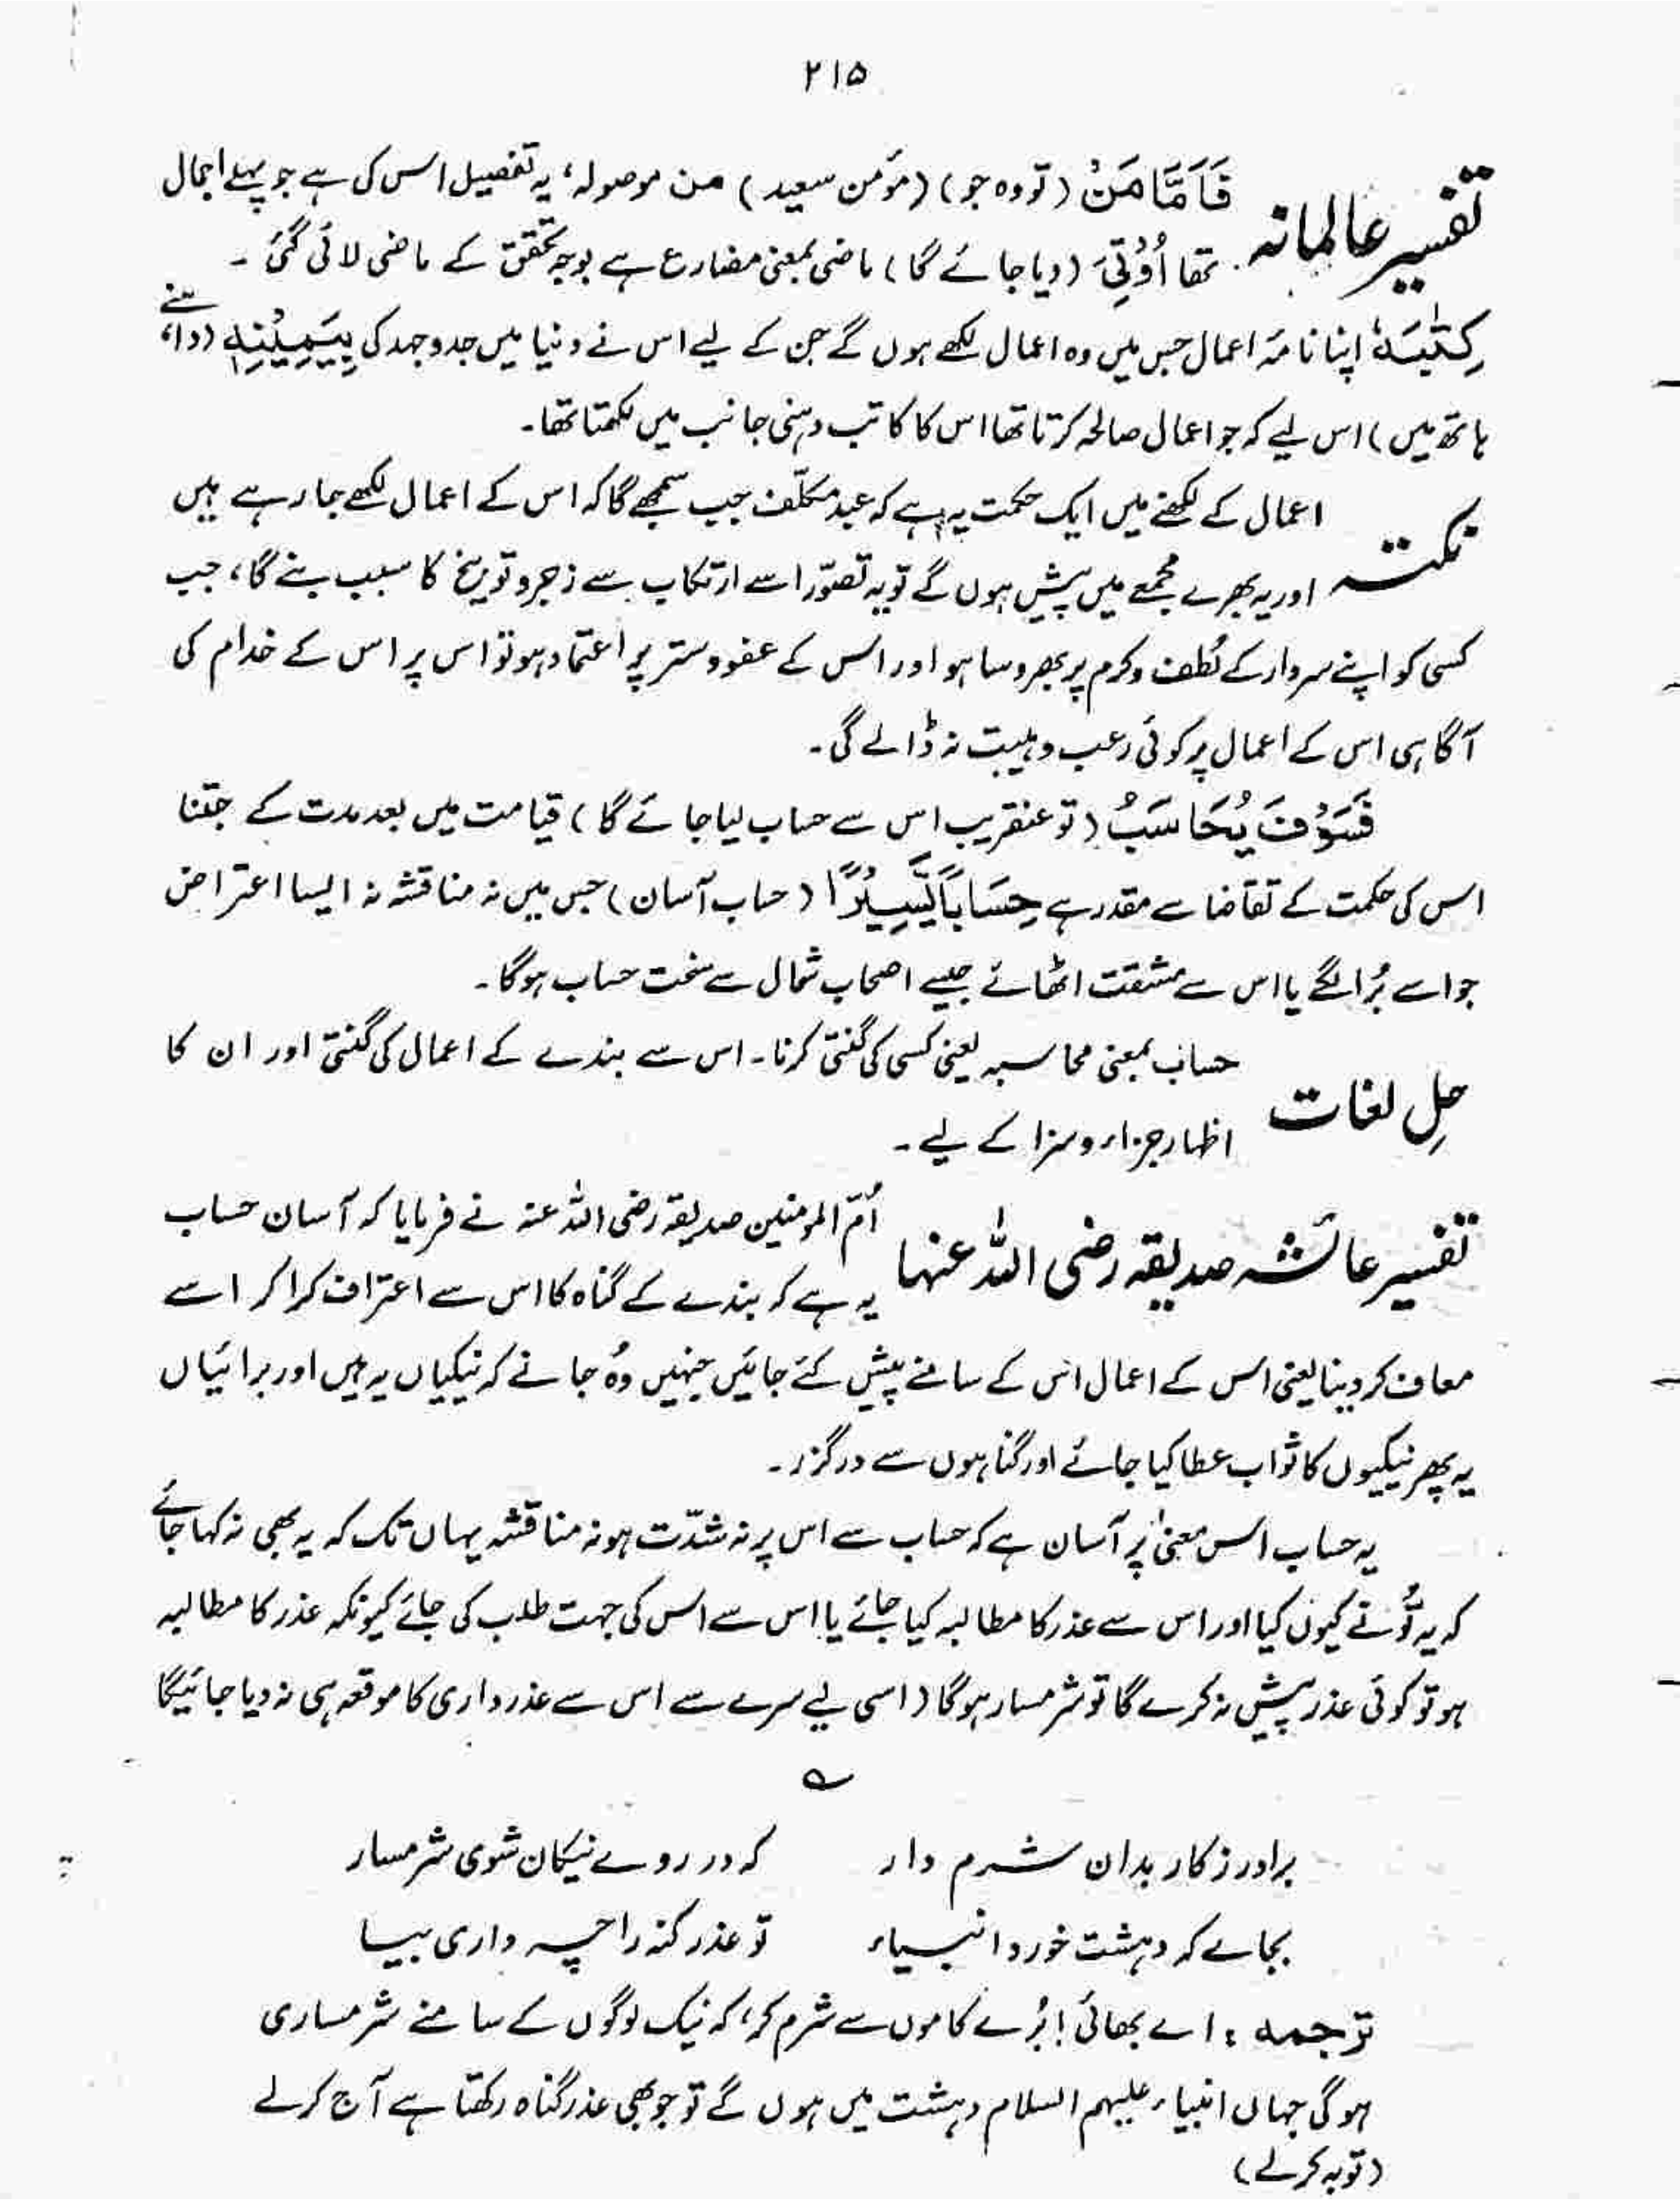 ۲۱۵
تفسیر عالمانہ فَاَمَّا مَنْ (تو وہ جو) (مؤمن سعید) من موصولہ، یہ تفصیل اس کی ہے جو پہلے اجمال
تھا اُوْتِیَ (دیا جائے گا) ماضی بمعنی مضارع ہے بوجہ تحقق کے ماضی لائی گئی۔
کِتٰبَهٗ اپنا نامۂ اعمال جس میں وہ اعمال لکھے ہوں گے جن کے لیے اس نے دنیا میں جدوجہد کی بِیَمِیْنِهٖ (داہنے
ہاتھ میں) اس لیے کہ جو اعمال صالحہ کرتا تھا اس کا کاتب دہنی جانب میں لکھتا تھا۔
نکتہ اعمال کے لکھنے میں ایک حکمت یہ ہے کہ عبد مکلّف جب سمجھے گا کہ اس کے اعمال لکھے جا رہے ہیں
اور یہ بھرے مجمعے میں پیش ہوں گے تو یہ تصوّر اسے ارتکاب سے زجر و توبیخ کا سبب بنے گا، جب
کسی کو اپنے سردار کے لُطف و کرم پر بھروسا ہو اور اس کے عفو و ستر پر اعتماد ہو تو اس پر اس کے خدام کی
آگاہی اس کے اعمال پر کوئی رعب و ہیبت نہ ڈالے گی۔
فَسَوْفَ یُحَاسَبُ (تو عنقریب اس سے حساب لیا جائے گا) قیامت میں بعد مدت کے جتنا
اس کی حکمت کے تقاضا سے مقدر ہے حِسَابًا یَّسِیْرًا (حساب آسان) جس میں نہ مناقشہ نہ ایسا اعتراض
جو اسے بُرا لگے یا اس سے مشقت اٹھائے جیسے اصحاب شمال سے سخت حساب ہوگا۔
حلِ لغات حساب بمعنی محاسبہ یعنی کسی کی گنتی کرنا۔ اس سے بندے کے اعمال کی گنتی اور ان کا
اظہار جزاء و سزا کے لیے۔
تفسیر عائشہ صدیقہ رضی اللہ عنہا اُمّ المومنین صدیقہ رضی اللہ عنہ نے فرمایا کہ آسان حساب
یہ ہے کہ بندے کے گناہ کا اس سے اعتراف کرا کر اسے
معاف کر دینا یعنی اس کے اعمال اس کے سامنے پیش کئے جائیں جنہیں وُہ جانے کہ نیکیاں یہ ہیں اور برائیاں
یہ پھر نیکیوں کا ثواب عطا کیا جائے اور گناہوں سے درگزر۔
یہ حساب اس معنیٰ پر آسان ہے کہ حساب سے اس پر نہ شدّت ہو نہ مناقشہ یہاں تک کہ یہ بھی نہ کہا جائے
کہ یہ تُو نے کیوں کیا اور اس سے عذر کا مطالبہ کیا جائے یا اس سے اس کی جہت طلب کی جائے کیونکہ عذر کا مطالبہ
ہو تو کوئی عذر پیش نہ کرے گا تو شرمسار ہوگا (اسی لیے سرے سے اس سے عذر داری کا موقعہ ہی نہ دیا جائیگا
؎
برادر ز کار بدان شرم دار کہ در روے نیکان شوی شرمسار
بجاے کہ دہشت خورد انبیاء تو عذر گنہ را چہ داری بیا
ترجمہ : اے بھائی! بُرے کاموں سے شرم کر، کہ نیک لوگوں کے سامنے شرمساری
ہوگی جہاں انبیاء علیہم السلام دہشت میں ہوں گے تو جو بھی عذر گناہ رکھتا ہے آج کر لے
(توبہ کر لے)